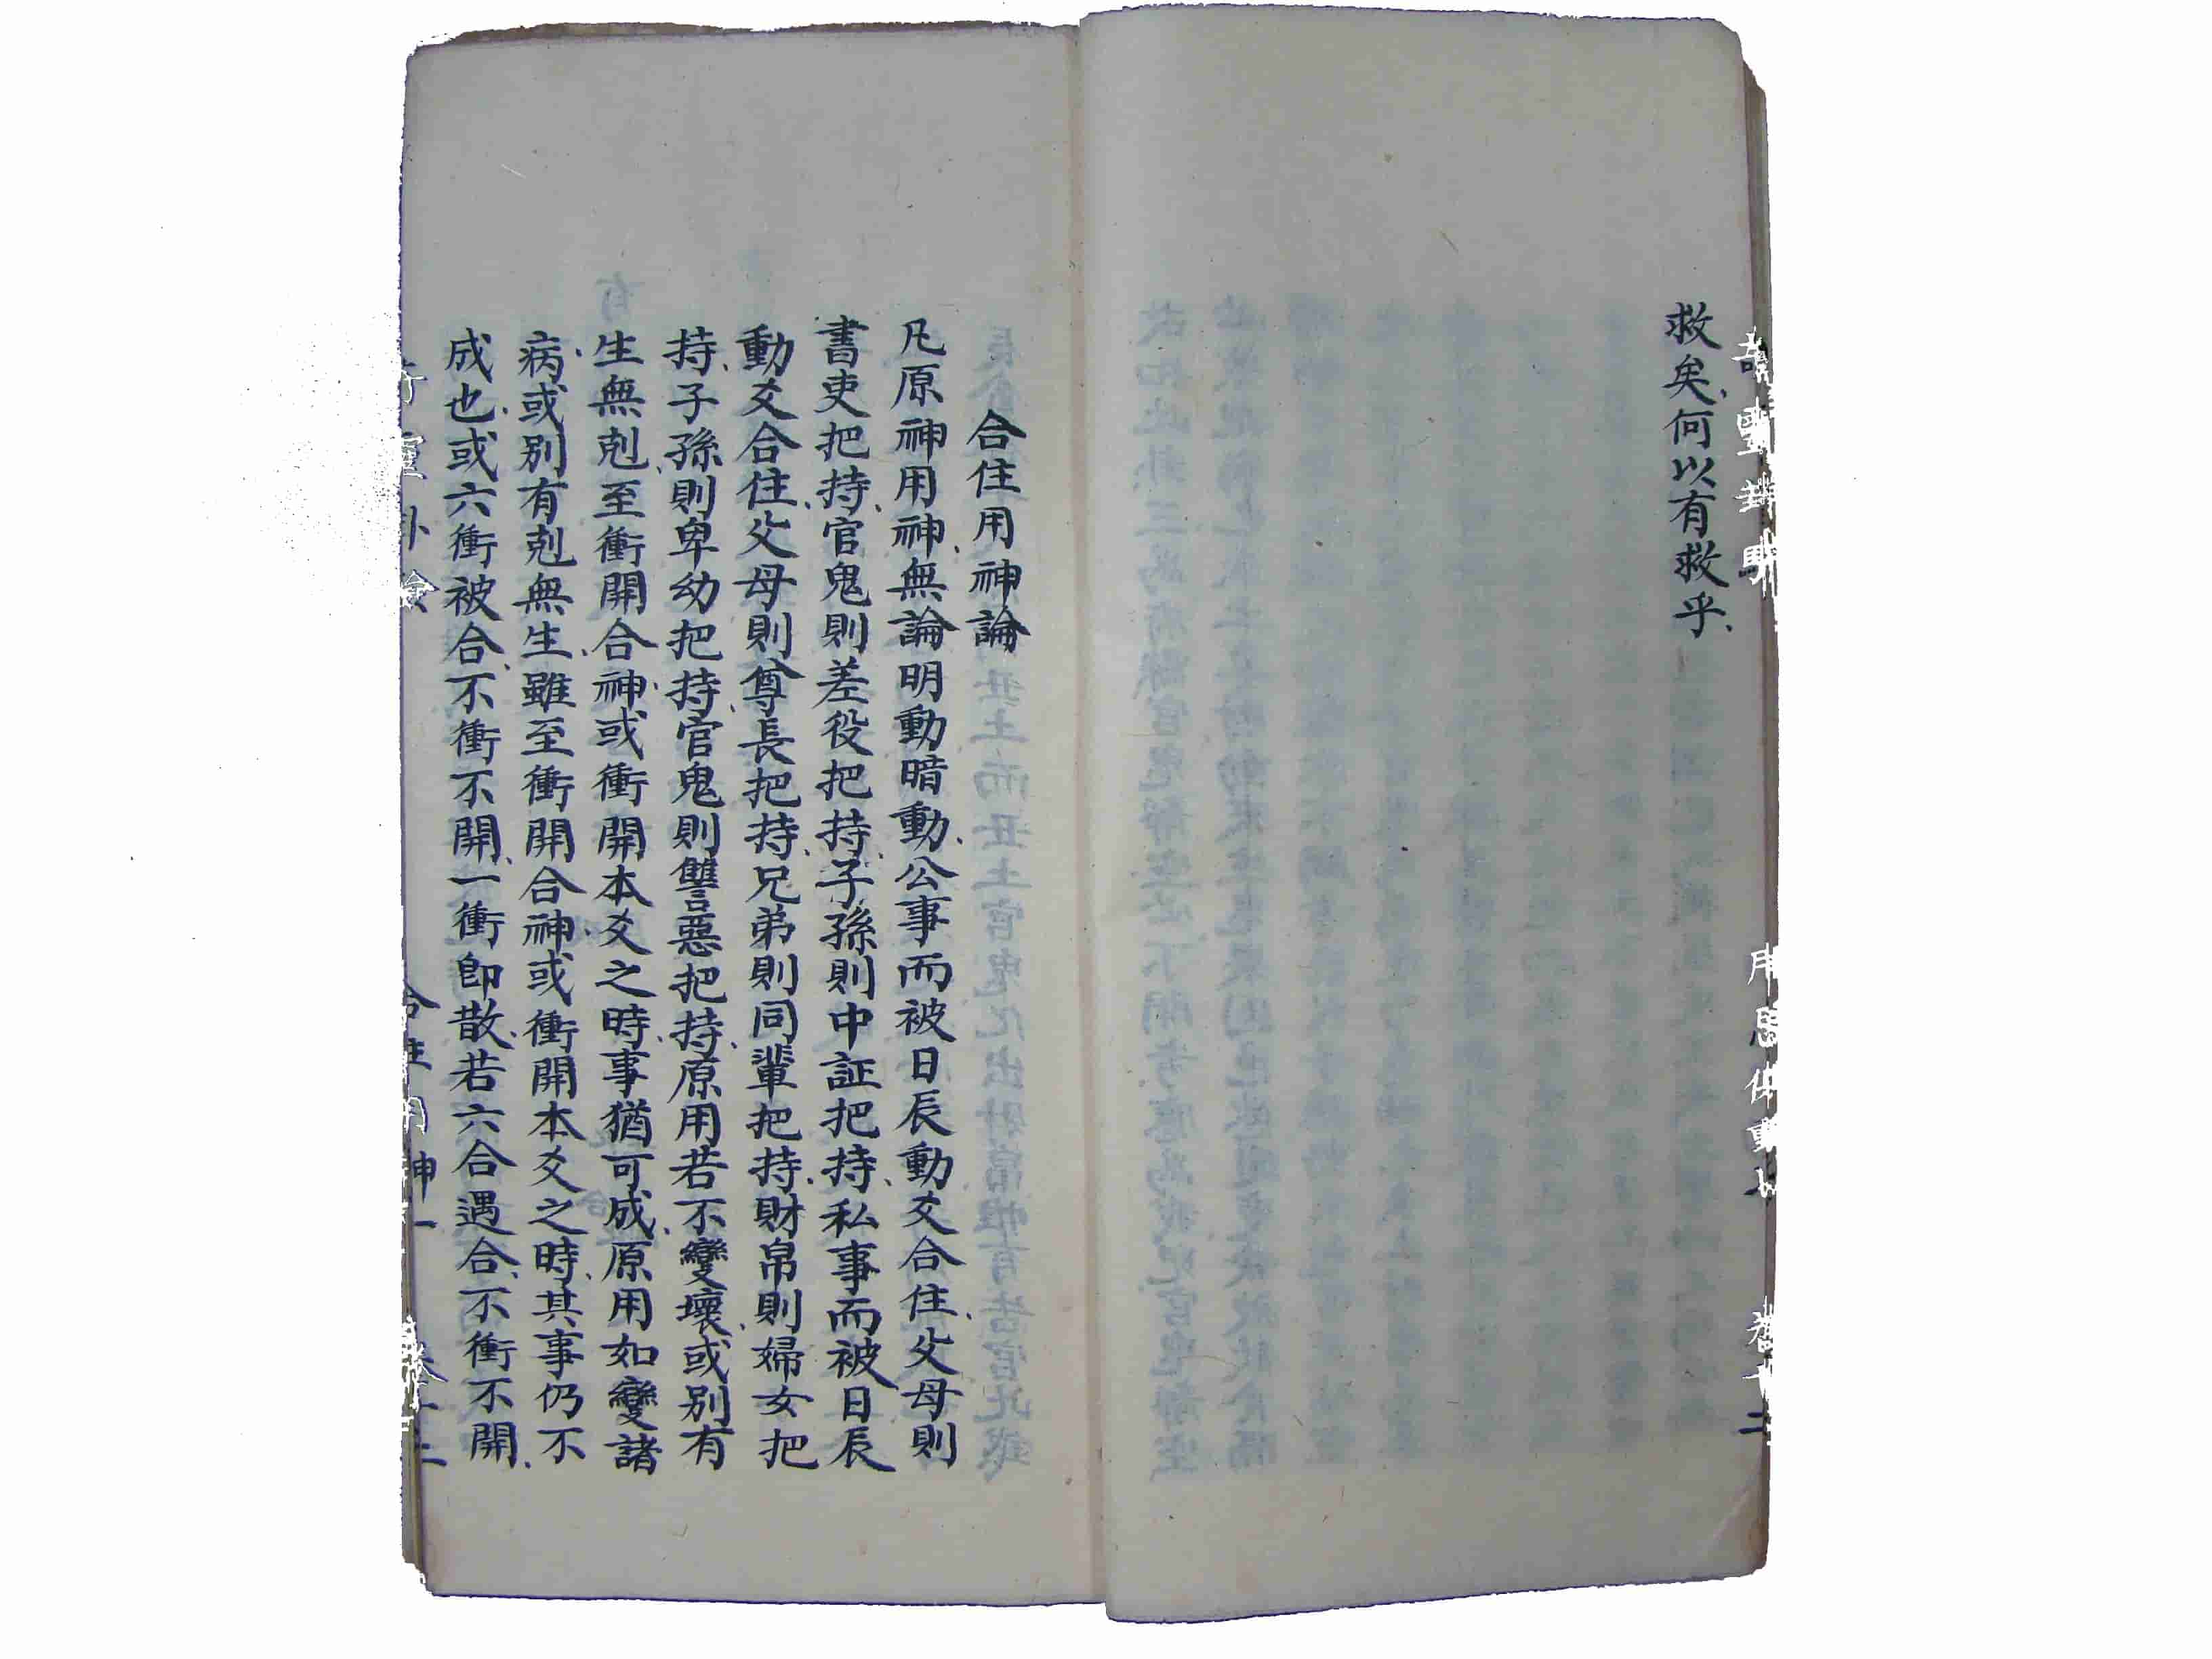 救矣、何以有救乎、
合住用神論
凡原神用神、無論明動暗動、公事而被日辰動爻合住、父母則
書吏把持、官鬼則差役把持、子孫則中証把持、私事而被日辰
動爻合住、父母則尊長把持、兄弟則同輩把持、財帛則婦女把
持、子孫則卑幼把持、官鬼則讐惡把持、原用若不變壞、或別有
生無剋、至衝開合神、或衝開本爻之時、事猶可成、原用如變諸
病、或別有剋無生、雖至衝開合神、或衝開本爻之時、其事仍不
成也、或六衝被合、不衝不開、一衝卽散、若六合遇合、不衝不開、
合住用神一